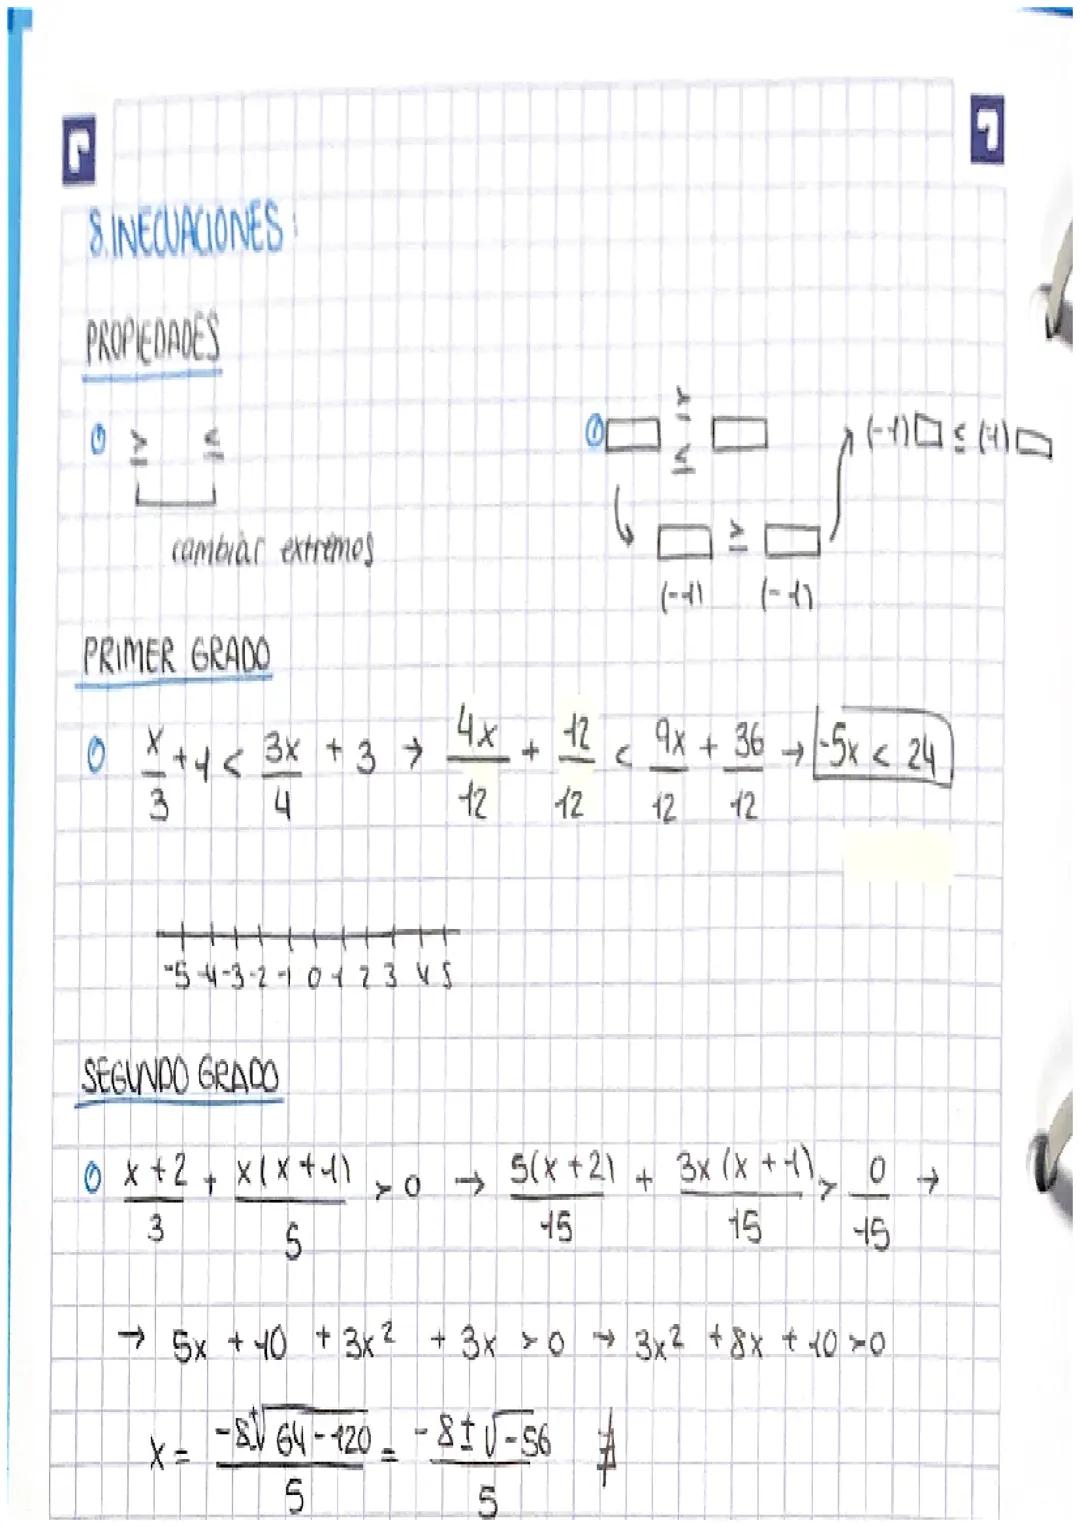 8. INECUACIONES:
PROPIEDADES
≥ ≤
cambiar extremos
① □ ≥ ≤ □
□ ≥ □
(-1) (-1)
(-1)□ ≤ (-1)□
PRIMER GRADO
x/3 + 1 < 3x/4 + 3 → 4x/12 + 12/12 < 9x/12 + 36/12 → -5x < 24
-5 -4 -3 -2 -1 0 1 2 3 4 5
SEGUNDO GRADO
x+2/3 + x(x+1)/5 > 0 → 5(x+2)/15 + 3x(x+1)/15 > 0/15 →
→ 5x + 10 + 3x² + 3x > 0 → 3x² + 8x + 10 > 0
x = -8±√64-120/5 = -8±√-56/5 ∄